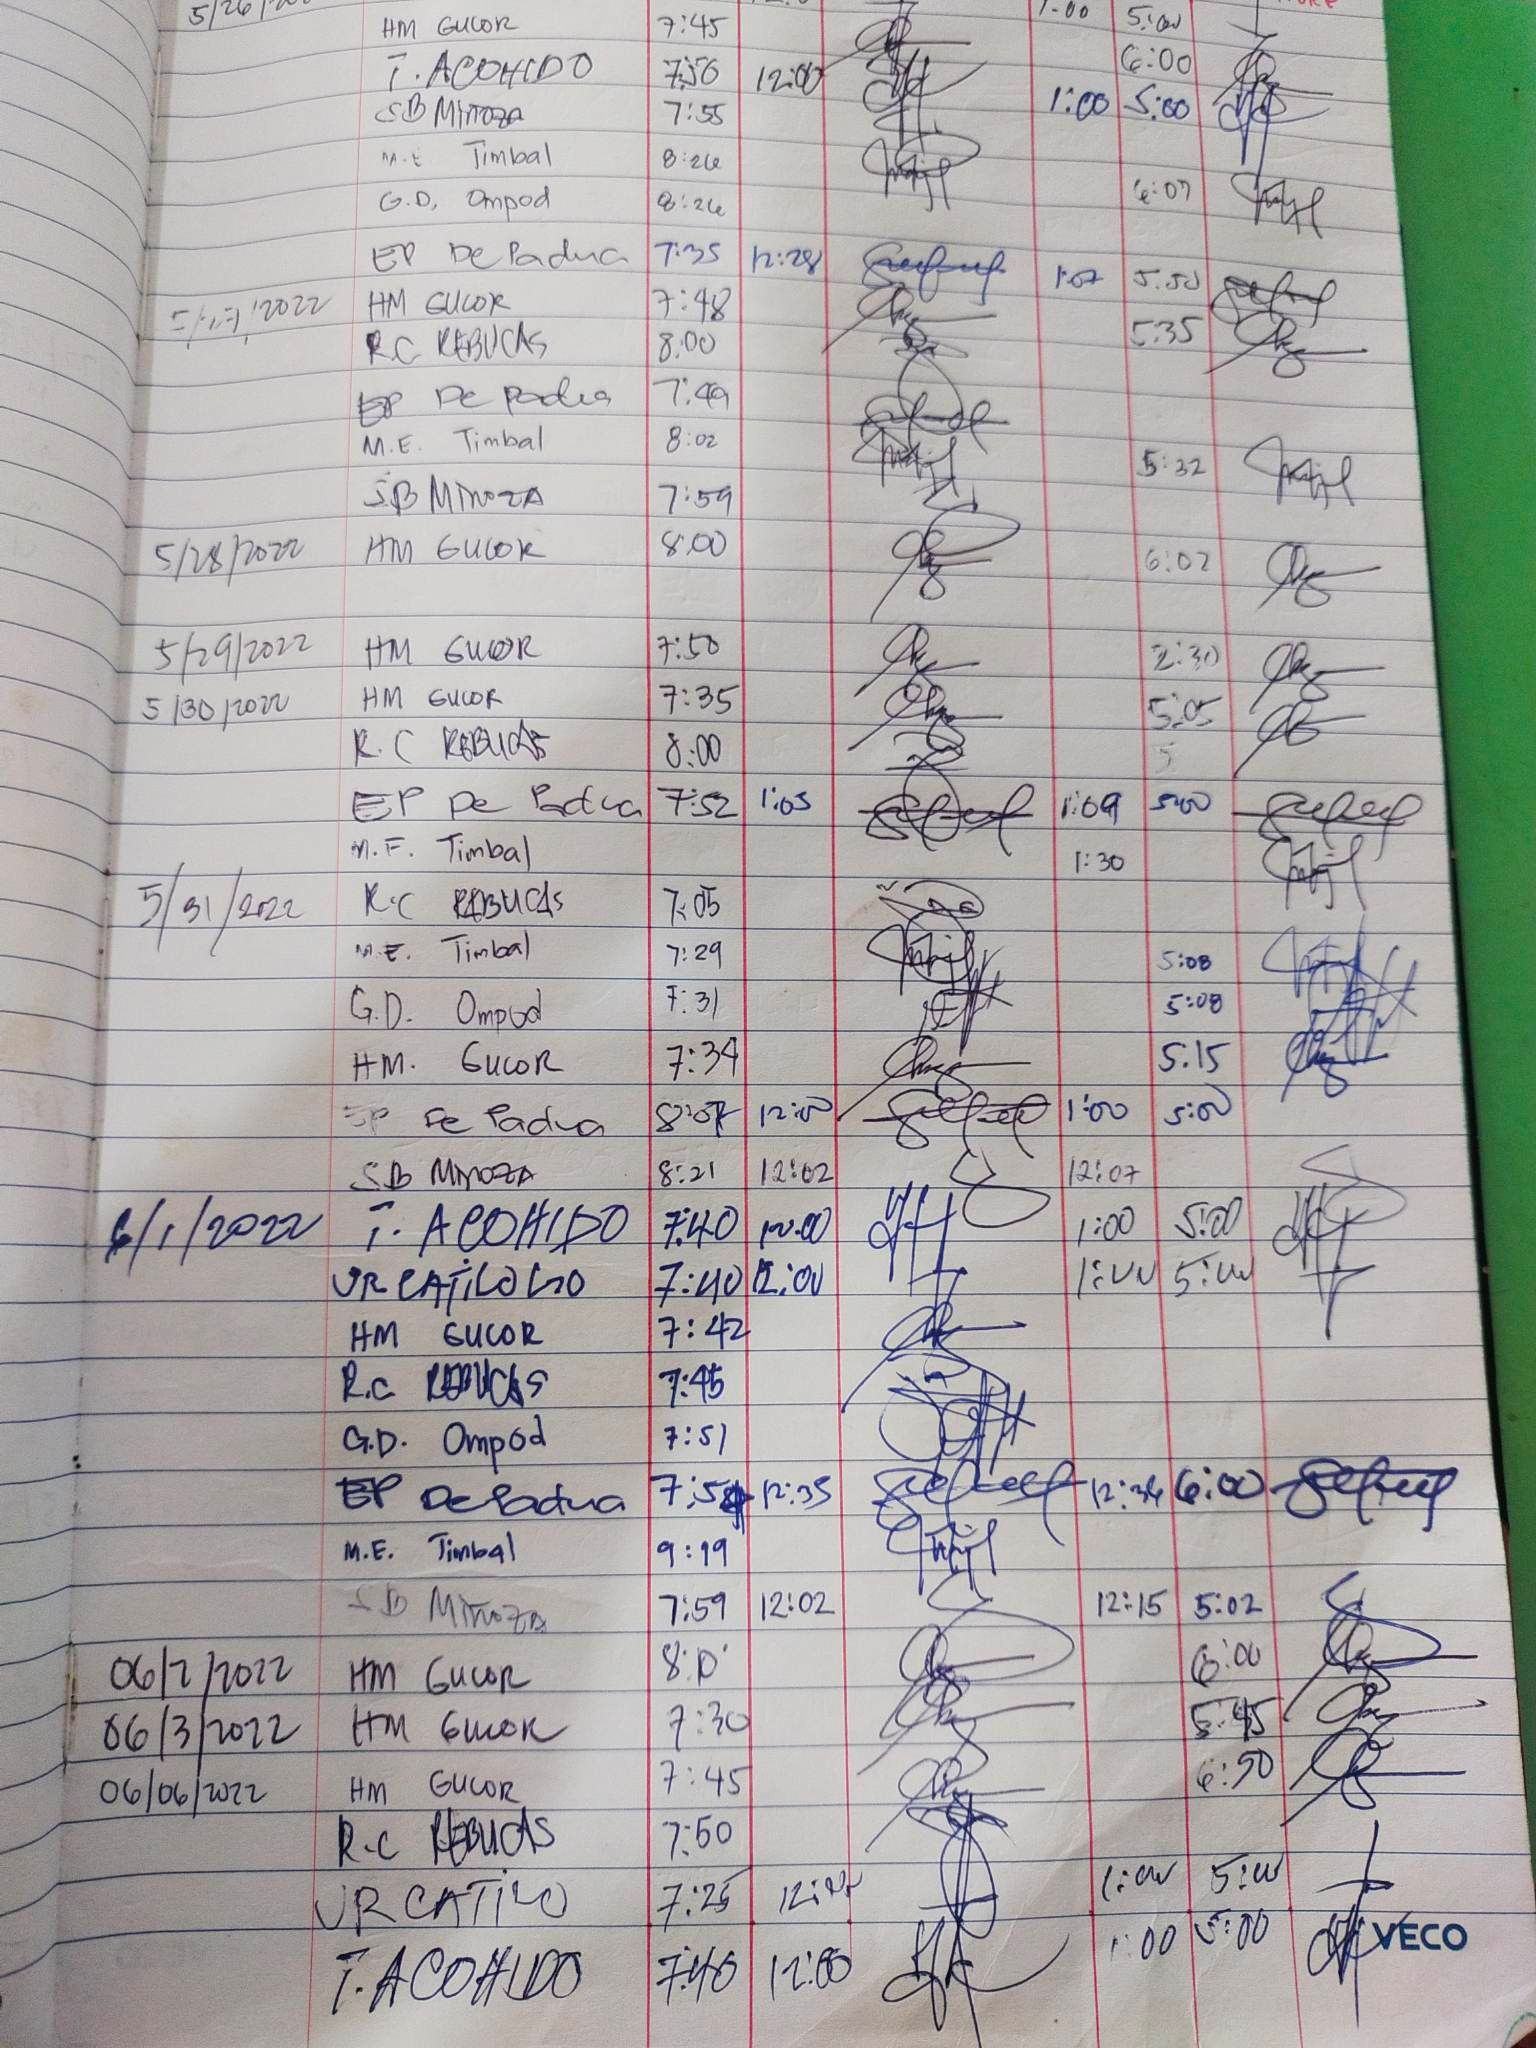 HM GUCOR 7:45 1:00 5:00
T. ACOHIDO 7:50 12:00 6:00
SB MINOZA 7:55 1:00 5:00
M.E Timbal 8:26
G.D. Ompod 8:26 6:07
EP De Padua 7:35 12:28 1:07 5:50
HM GUCOR 7:48 5:35
R.C REBUCAS 8:00
EP De Padua 7:49
M.E. Timbal 8:02 5:32
SB MINOZA 7:59
5/28/2022 HM GUCOR 8:00 6:02
5/29/2022 HM GUCOR 7:50 2:30
5/30/2022 HM GUCOR 7:35 5:05
R.C REBUCAS 8:00 5
EP De Padua 7:52 1:05 1:09 5:00
M.E. Timbal 1:30
5/31/2022 R.C REBUCAS 7:05
M.E. Timbal 7:29 5:08
G.D. Ompod 7:31 5:08
HM. GUCOR 7:34 5.15
EP De Padua 8:07 12:00 1:00 5:00
SB MINOZA 8:21 12:02 12:07
6/1/2022 T. ACOHIDO 7:40 12:00 1:00 5:00
7:40 12:00 1:00 5:00
HM GUCOR 7:42
R.C REBUCAS 7:45
G.D. Ompod 7:51
EP De Padua 12:35 12:36 6:00
M.E. Timbal 9:19
SB MINOZA 7:59 12:02 12:15 5:02
06/2/2022 HM GUCOR 6:00
06/3/2022 HM GUCOR 7:30 5:45
06/06/2022 HM GUCOR 7:45 6:50
R.C REBUCAS 7:50
JR CATILO 7:25 12:00 1:00 5:00
T. ACOHIDO 7:40 12:00 1:00 5:00
VECO